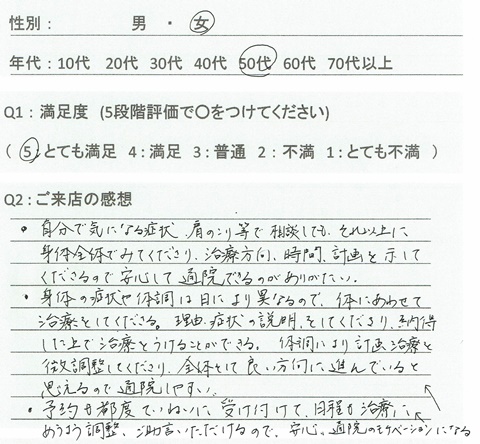 性別： 男 ・ 女
年代：10代 20代 30代 40代 50代 60代 70代以上
Q1：満足度 (5段階評価で〇をつけてください)
( 5:とても満足 4:満足 3:普通 2:不満 1:とても不満 )
Q2：ご来店の感想
・自分で気になる症状、肩のこり等で相談しても、それ以上に
身体全体でみてくださり、治療方向、時間、計画を示して
くださるので安心して通院できるのがありがたい。
・身体の症状や体調は日により異なるので、体にあわせて
治療をしてくださる。理由、症状の説明、をしてくださり、納得
した上で治療をうけることができる。体調により計画治療を
微調整してくださり、全体として良い方向に進んでいると
思えるので通院しやすい。
・予約も都度ていねいに受け付けて、日程も治療に
あうよう調整、ご助言いただけるので、安心、通院のモチベーションになる